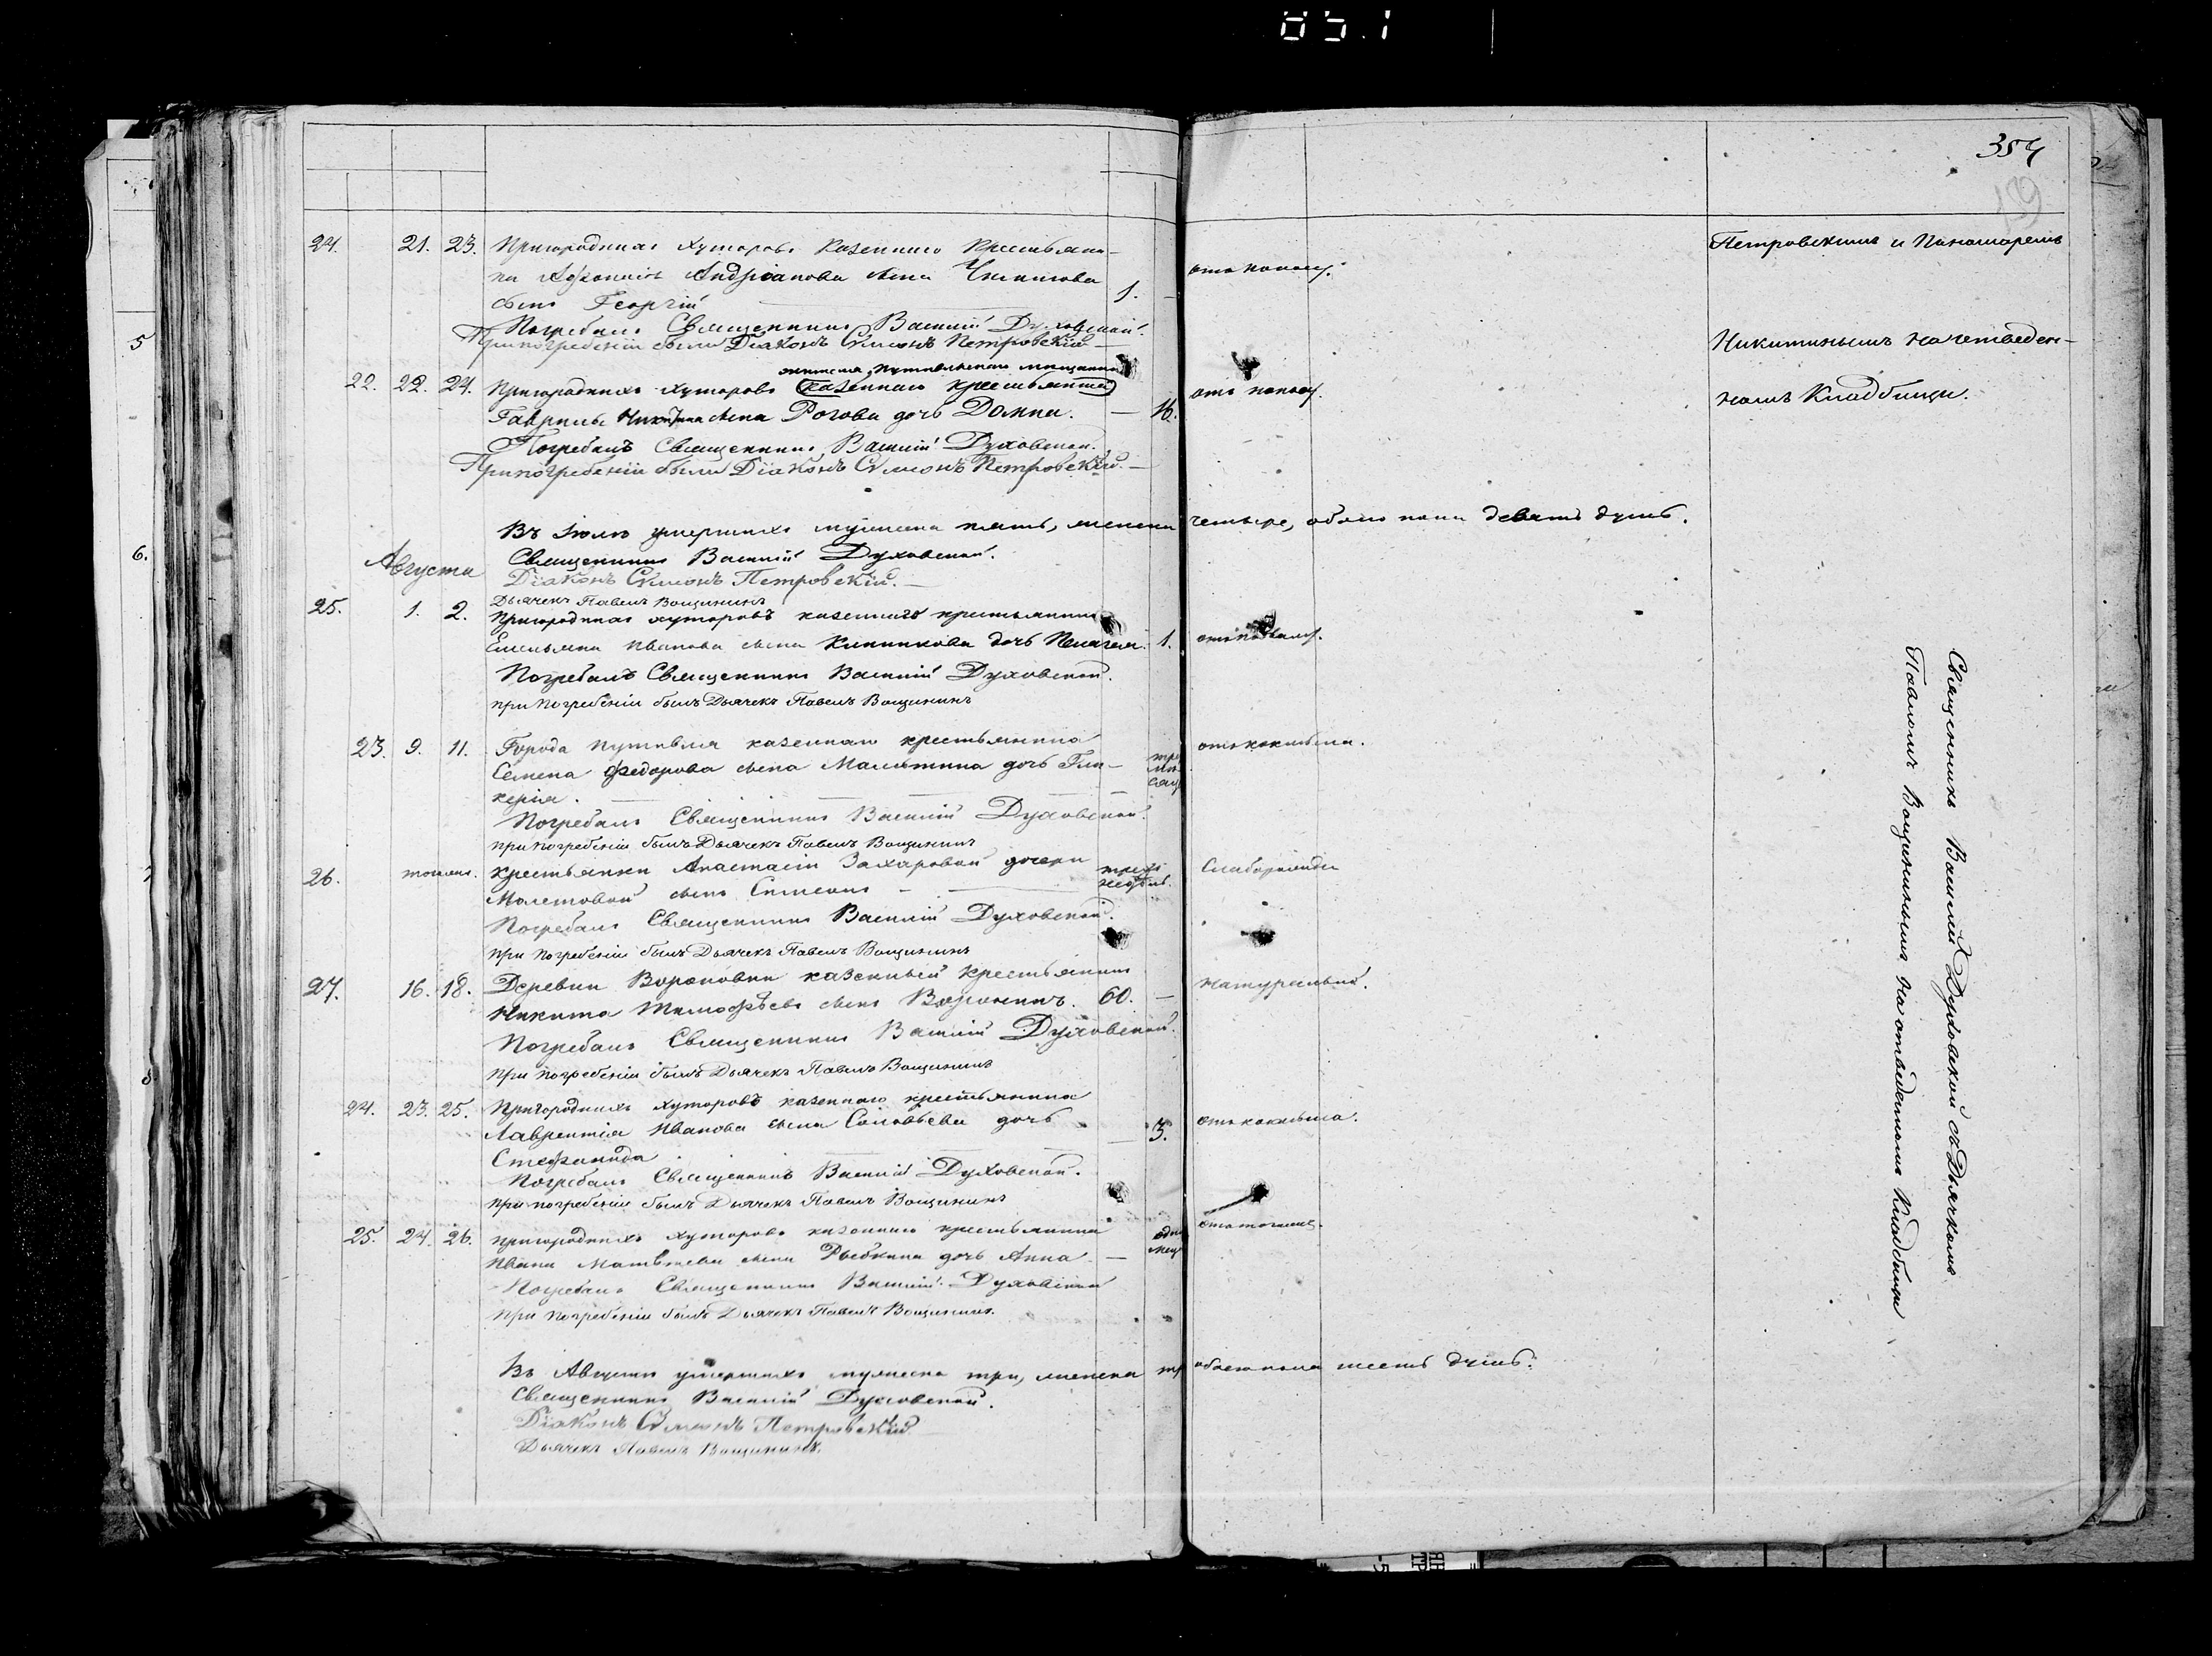 351
354
139
24. 21. 23. Пригородныхъ Хуторовъ Казеннаго Крестьяни-
на Афонасія Андріанова сына
сынъ Георгій 1. — отъ поносу.
Погребалъ Священникъ Василій Духовской.
При погребеніи были Діаконъ Сѵмеонъ Петровскій —
Петровскимъ и Понамаремъ
Никитинымъ на отведен-
номъ Кладбищи.
жителя, Путивльскаго мещанина
22. 22. 24. Пригородныхъ Хуторовъ Казеннаго Крестьянина
Гаврилы Никитина сына Рогова дочь Домна. — 16. отъ поносу.
Погребалъ Священникъ Василій Духовской.
При погребеніи были Діаконъ Сѵмеонъ Петровскій. —
Въ Іюлѣ умершихъ мужеска пять, женска четыре, обоего пола девять душъ.
Священникъ Василій Духовской.
Августа
Діаконъ Сѵмеонъ Петровскій. —
Дьячекъ Павелъ Вощининъ
25. 1. 2. Пригородныхъ хуторовъ казеннаго крестьянина
Емельяна Иванова сына дочь Пелагея. 1.
Погребалъ Священникъ Василій Духовской.
при погребеніи былъ Дьячекъ Павелъ Вощининъ
23. 9. 11. Города Путивля казеннаго крестьянина
Семена Федорова сына дочь Гли-
керія. — отъ кокльша.
Погребалъ Священникъ Василій Духовской.
при погребеніи былъ Дьячекъ Павелъ Вощининъ
26. тогожъ. Крестьянки Анастасіи Захаровой дочери
сынъ Симеонъ — трехъ недель.
Погребалъ Священникъ Василій Духовской.
при погребеніи былъ Дьячекъ Павелъ Вощининъ
27. 16. 18. Деревни Вороновки казенный Крестьянинъ
Никита Тимофѣевъ сынъ Воронинъ. 60. — натуральной.
Погребалъ Священникъ Василій Духовской.
при погребеніи былъ Дьячекъ Павелъ Вощининъ
24. 23. 25. Пригородныхъ хуторовъ казеннаго крестьянина
Лаврентія Иванова сына Соловьева дочь
Стефанида — 3. отъ кокльша.
Погребалъ Священникъ Василій Духовской.
при погребеніи былъ Дьячекъ Павелъ Вощининъ
25. 24. 26. пригородныхъ Хуторовъ казеннаго крестьянина
Ивана Матвѣева сына Рыбкина дочь Анна —
Погребалъ Священникъ Василій Духовской
при погребеніи былъ Дьячекъ Павелъ Вощининъ.
Въ Августѣ умершихъ мужеска три, женска обоего пола шесть душъ.
Священникъ Василій Духовской.
Діаконъ Сѵмеонъ Петровскій.
Дьячекъ Павелъ Вощининъ.
Священникъ Василій Духовской съ Дьячкомъ
Павломъ Вощининымъ на отведенномъ Кладбищи